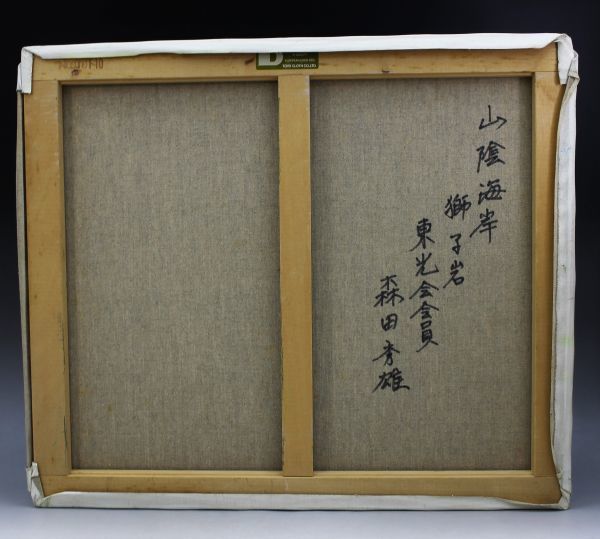 山陰海岸
獅子岩
東光会会員
森田秀雄